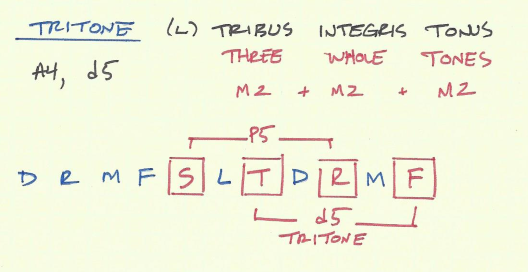 TRITONE (L) TRIBUS INTEGRIS TONUS
THREE WHOLE TONES
A4, d5
M2 + M2 + M2
P5
D R M F S L T D R M F
d5
TRITONE